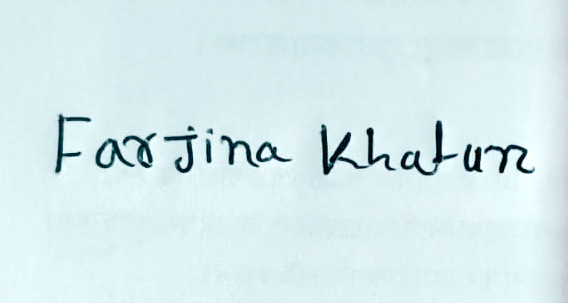 Farjina Khatun